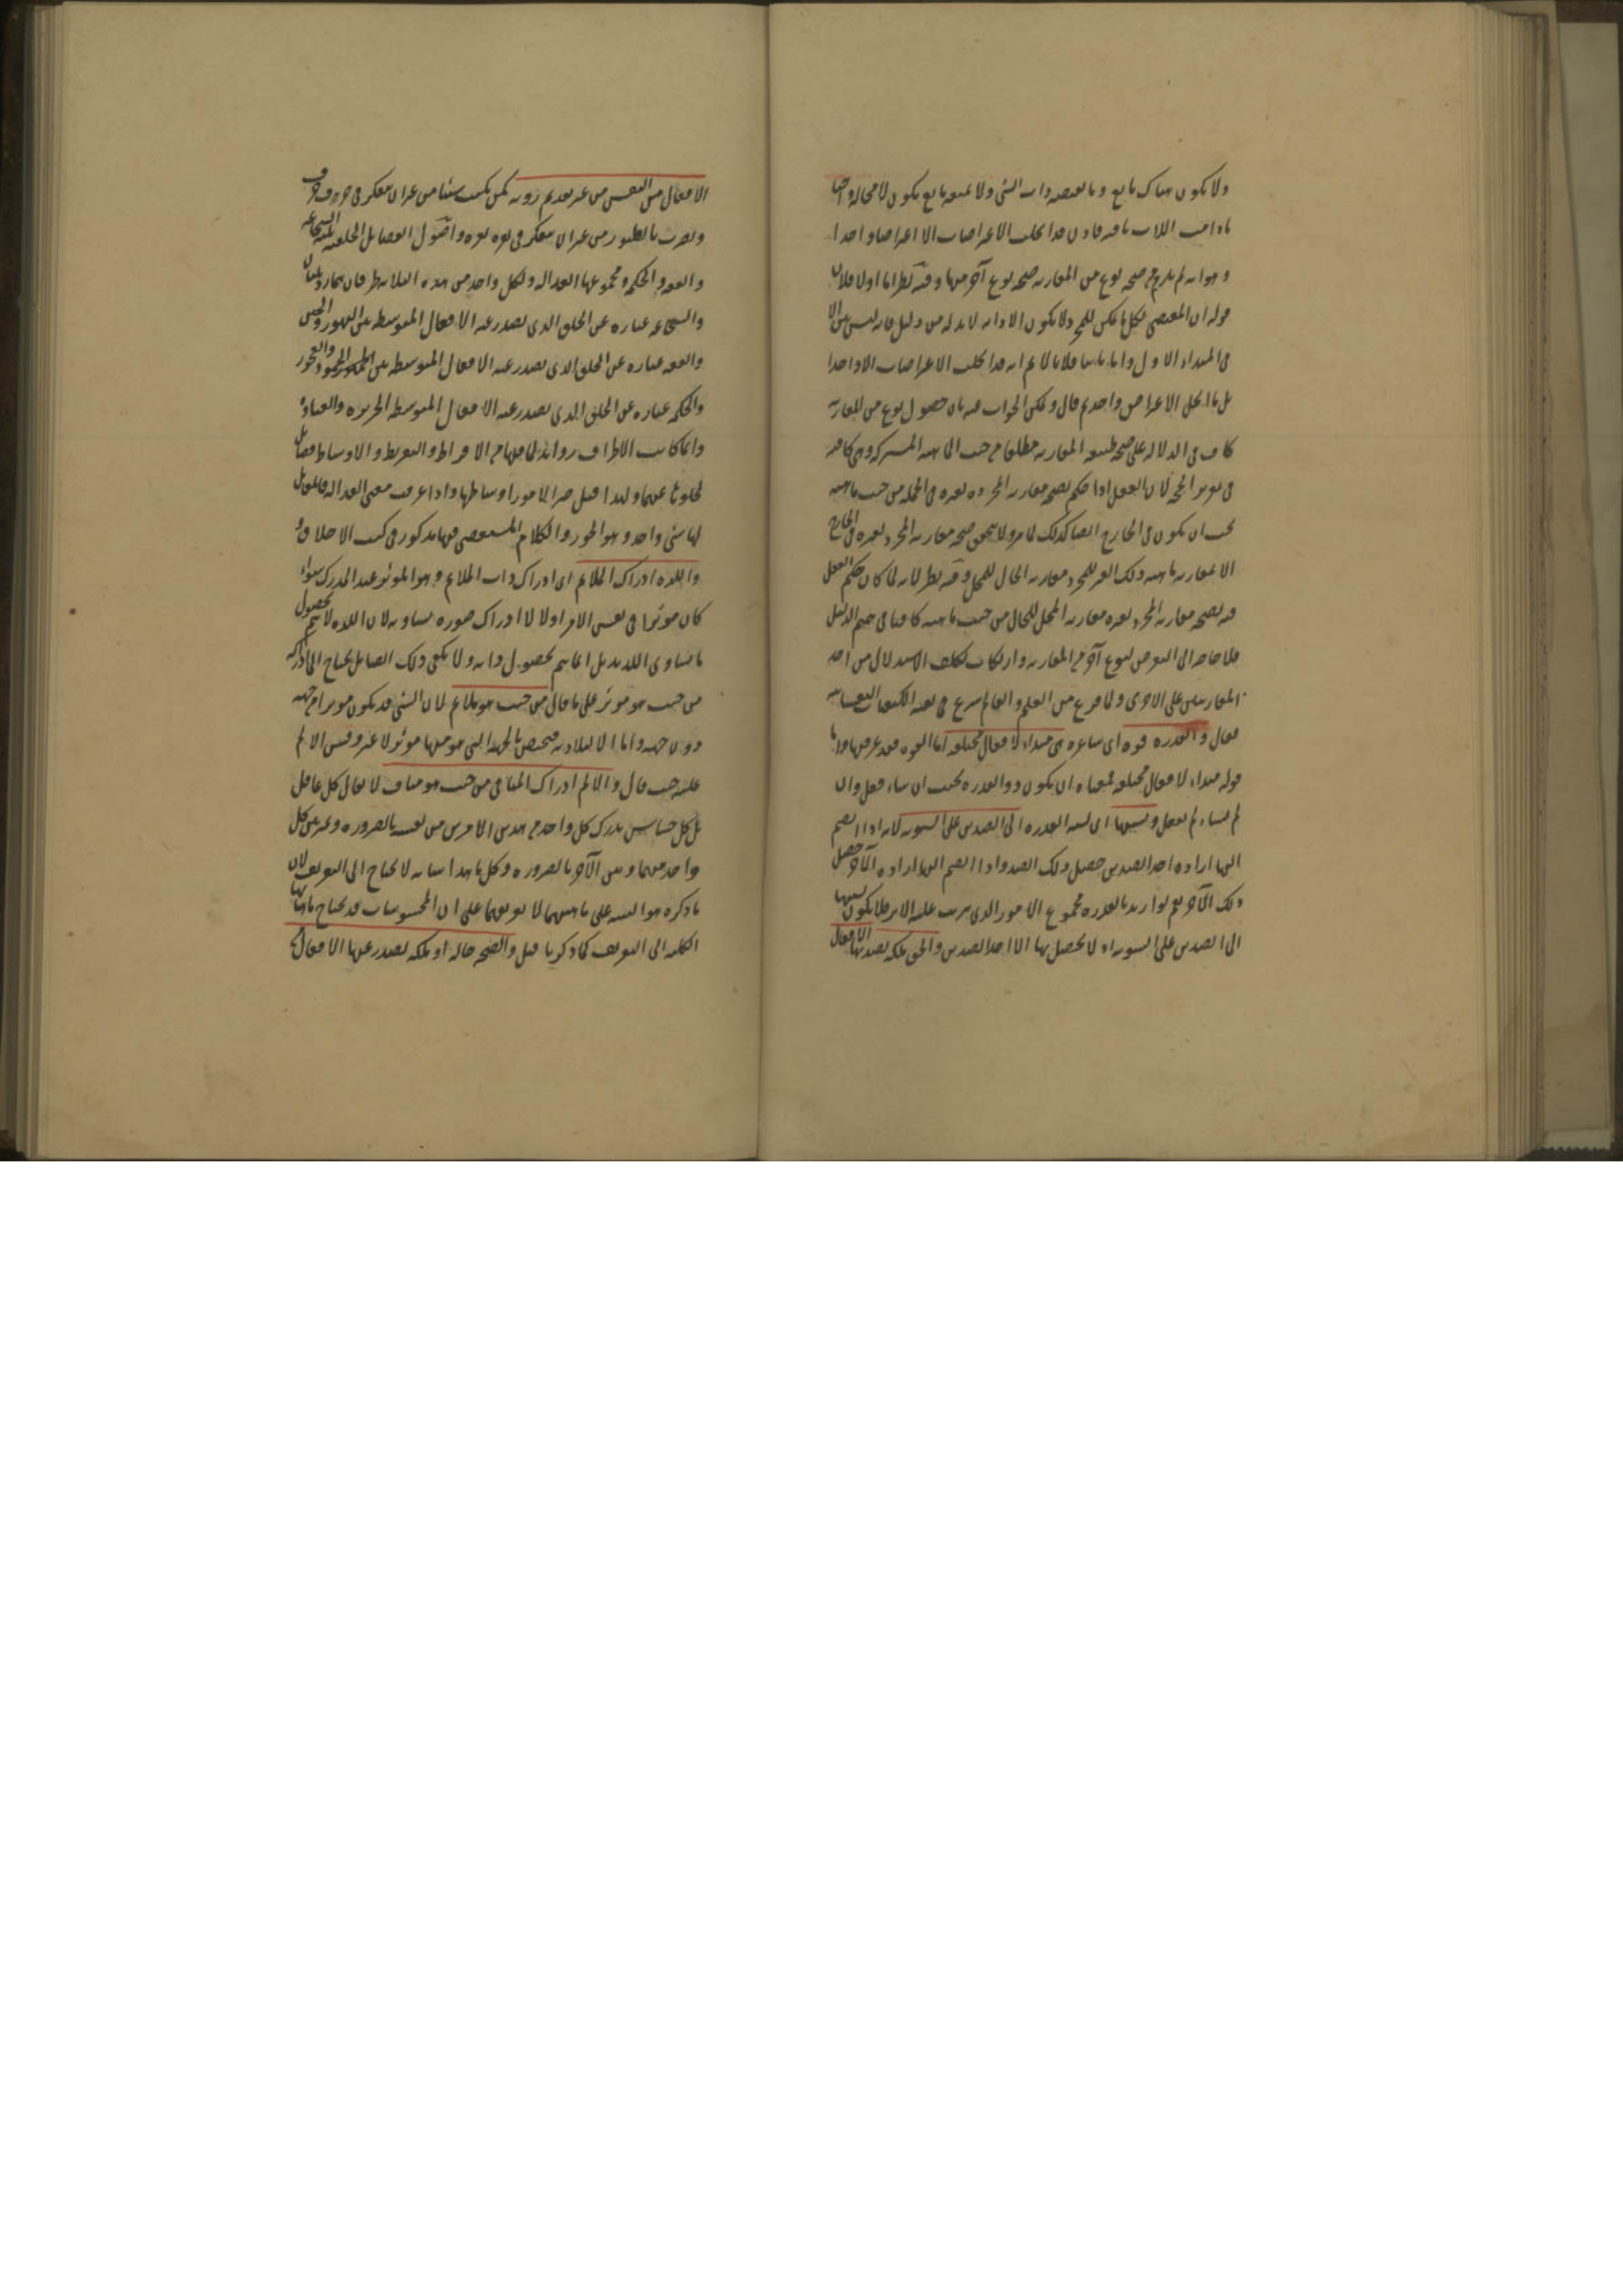 ولا يكون هناك مانع وما يقتضيه ذات الشئ ولا يمنعه مانع يكون لا محالة واجبا
ما دامت الذات باقية فاذن هذا كلب الاعراضات الا اعراضا واحدا
وهو انه لم يلزم من صحة نوع من المقارنة صحة نوع آخر منها وفيه نظر اما اولا فلان
قوله ان المقتضى لكل ما يمكن للمجرد لا يكون الا ذاته لابد له من دليل فانه ليس بين الا
في المبداء الاول واما ثانيا فلانا لا نم ان هذا كلب الاعراضات الا واحدا
بل ما انحل الاعراض واحد ثم قال ويمكن الجواب عنه بان حصول نوع من المقارنة
كاف في الدلالة على صحة طبيعة المقارنة مطلقا من حيث الماهية المشتركة وهي كافية
في تقرير الحجة لان العقل اذا حكم بصحة مقارنة المجردة لغيره في الجملة من حيث ماهيته
يجب ان يكون في الخارج ايضا كذلك لما مر ولا يتحقق صحة مقارنة المجرد لغيره في الخارج
الا بمقارنة ماهية ذلك الغير للمجرد مقارنة الحال للمحل وفيه نظر لانه لما كان حكم العقل
فيه بصحة مقارنة المجرد لغيره مقارنة المحل للحال من حيث ماهيته كافيا في تتميم الدليل
فلا حاجة الى التعرض لنوع آخر من المقارنة وارتكاب تكلف الاستدلال من احد
المقارنتين على الاخرى ولما فرغ من العلم والعالم شرع في بقية الكيفيات النفسانية
فقال والقدرة قوة اى شاعرة هي مبداء لافعال مختلفة اما القوة فقد عرفتها واما
قوله مبداء لافعال مختلفة فمعناه ان يكون ذو القدرة بحيث ان شاء فعل وان
لم يشاء لم يفعل ونسبتها اى نسبة القدرة الى الضدين على السوية لانه اذا انضم
اليها ارادة احد الضدين حصل ذلك الضد واذا انضم اليها ارادة الآخر حصل
ذلك الآخر نعم لو اريد بالقدرة مجموع الامور الذى يترتب عليه الاثر فلا يكون نسبتها
الى الضدين على السوية اذ لا يحصل بها الا احد الضدين والخلق ملكة يصدر بها الافعال
الافعال من النفس من غير تقدم روية كمن يكتب شيئا من غير ان يتفكر في حرف حرف
ويضرب بالطنبور من غير ان يتفكر في نقرة نقرة واصول الفضايل الخلقية ثلثة الشجاعة
والعفة والحكمة ومجموعها العدالة ولكل واحد من هذه الثلاثة طرفان هما رذيلتان
والشجاعة عبارة عن الخلق الذى يصدر عنه الافعال المتوسطة بين التهور والجبن
والعفة عبارة عن الخلق الذى يصدر عنه الافعال المتوسطة بين الخمود والفجور
والحكمة عبارة عن الخلق الذى يصدر عنه الافعال المتوسطة الجربزة والغباوة
وانما كانت الاطراف رذائل لما فيها من الافراط والتفريط والاوساط فضائل
لخلوها عنهما ولهذا قيل خير الامور اوساطها واذا عرفت معنى العدالة فالمقابل
لها شئ واحد وهو الجور والكلام المستقصى فيها مذكور في كتب الاخلاق
واللذة ادراك الملايم اى ادراك ذات الملايم وهو المؤثر عند المدرك سواء
كان مؤثرا في نفس الامر اولا لا ادراك صورة مساوية لان اللذة لا تتم بحصول
ما يساوى اللذيذ بل انما تتم بحصول ذاته ولا يكفي ذلك ايضا بل يحتاج الى ادراكه
من حيث هو مؤثر على ما قال من حيث هو ملايم لان الشئ قد يكون مؤثرا من جهة
دون جهة واما الالتذاذ به فيختص بالجهة التى هو منها مؤثر لا غير وقس الالم
عليه حيث قال والالم ادراك المنافي من حيث هو مناف لا يقال كل عاقل
بل كل حساس يدرك كل واحد من هذين الامرين من نفسه بالضرورة ويميز بين كل
واحد منهما وبين الآخر بالضرورة وكل ما هذا شانه لا يحتاج الى التعريف لان
ما ذكره هو التنبيه على ماهيتهما لا تعريفهما على ان المحسوسات قد يحتاج ماهياتها
الكلية الى التعريف كما ذكرنا قبل والصحة حالة او ملكة يصدر عنها الافعال